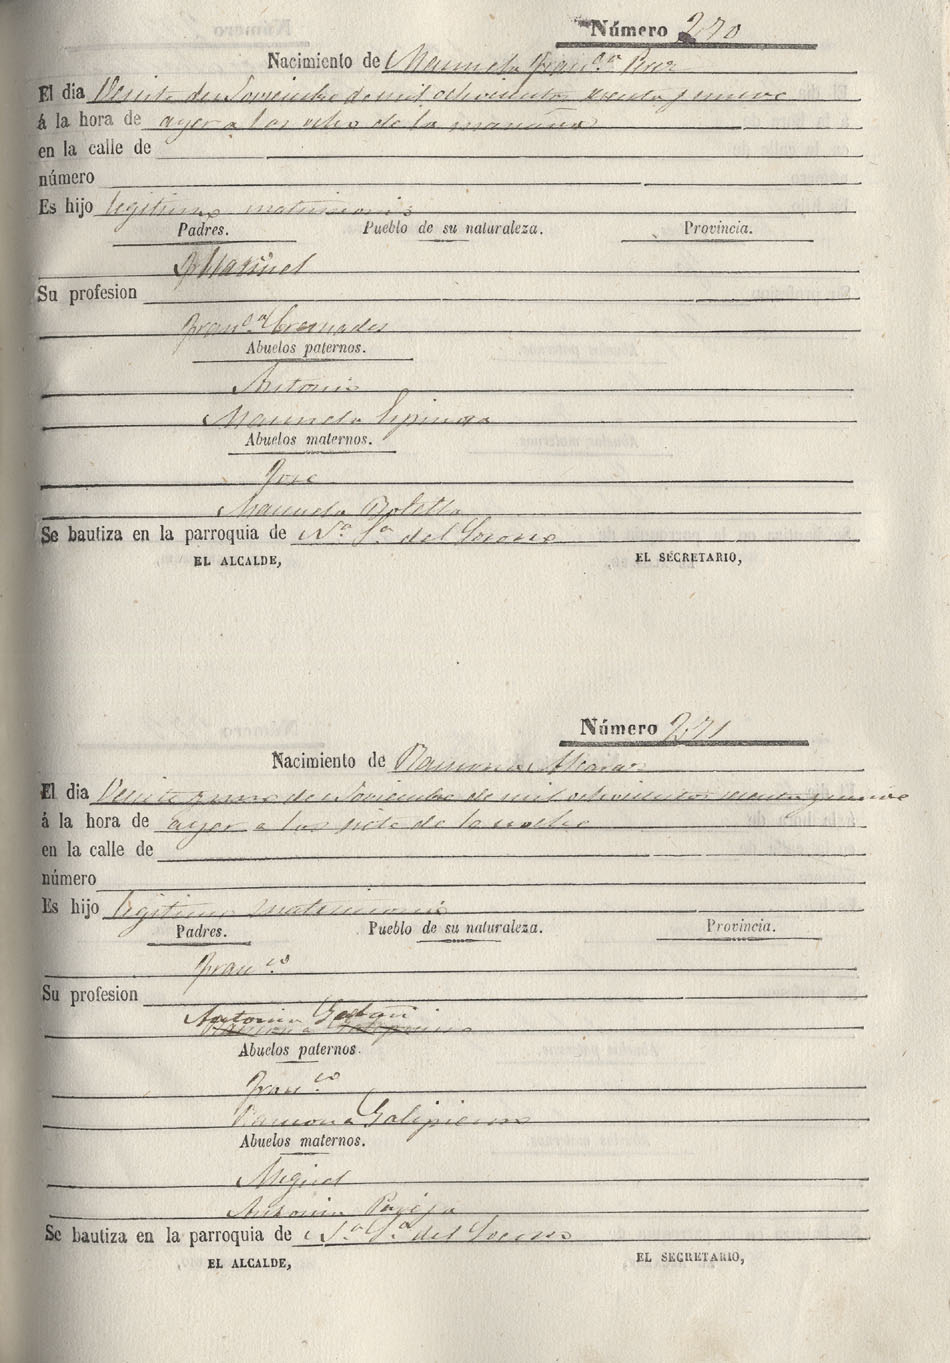 Número 270
Nacimiento de Manuela Fran.ca
El dia Veinte de Noviembre de mil ochocientos y nueve
á la hora de ayer a las ocho de la mañana
en la calle de
número
Es hijo legitimo matrimonio
Padres. Pueblo de su naturaleza. Provincia.
Manuel
Su profesion
Fran.ca Cremades
Abuelos paternos.
Antonio
Manuela Espinosa
Abuelos maternos.
Jose
Manuela Botella
Se bautiza en la parroquia de N.a S.a del Socorro
EL ALCALDE, EL SECRETARIO,
Número 271
Nacimiento de Ramona
El dia Veinte y uno de Noviembre de mil ochocientos y nueve
á la hora de ayer a las siete de la noche
en la calle de
número
Es hijo legitimo matrimonio
Padres. Pueblo de su naturaleza. Provincia.
Fran.co
Su profesion
Antonia
Ramona Galipienso
Abuelos paternos.
Fran.co
Ramona Galipienso
Abuelos maternos.
Miguel
Antonia
Se bautiza en la parroquia de N.a S.a del Socorro
EL ALCALDE, EL SECRETARIO,